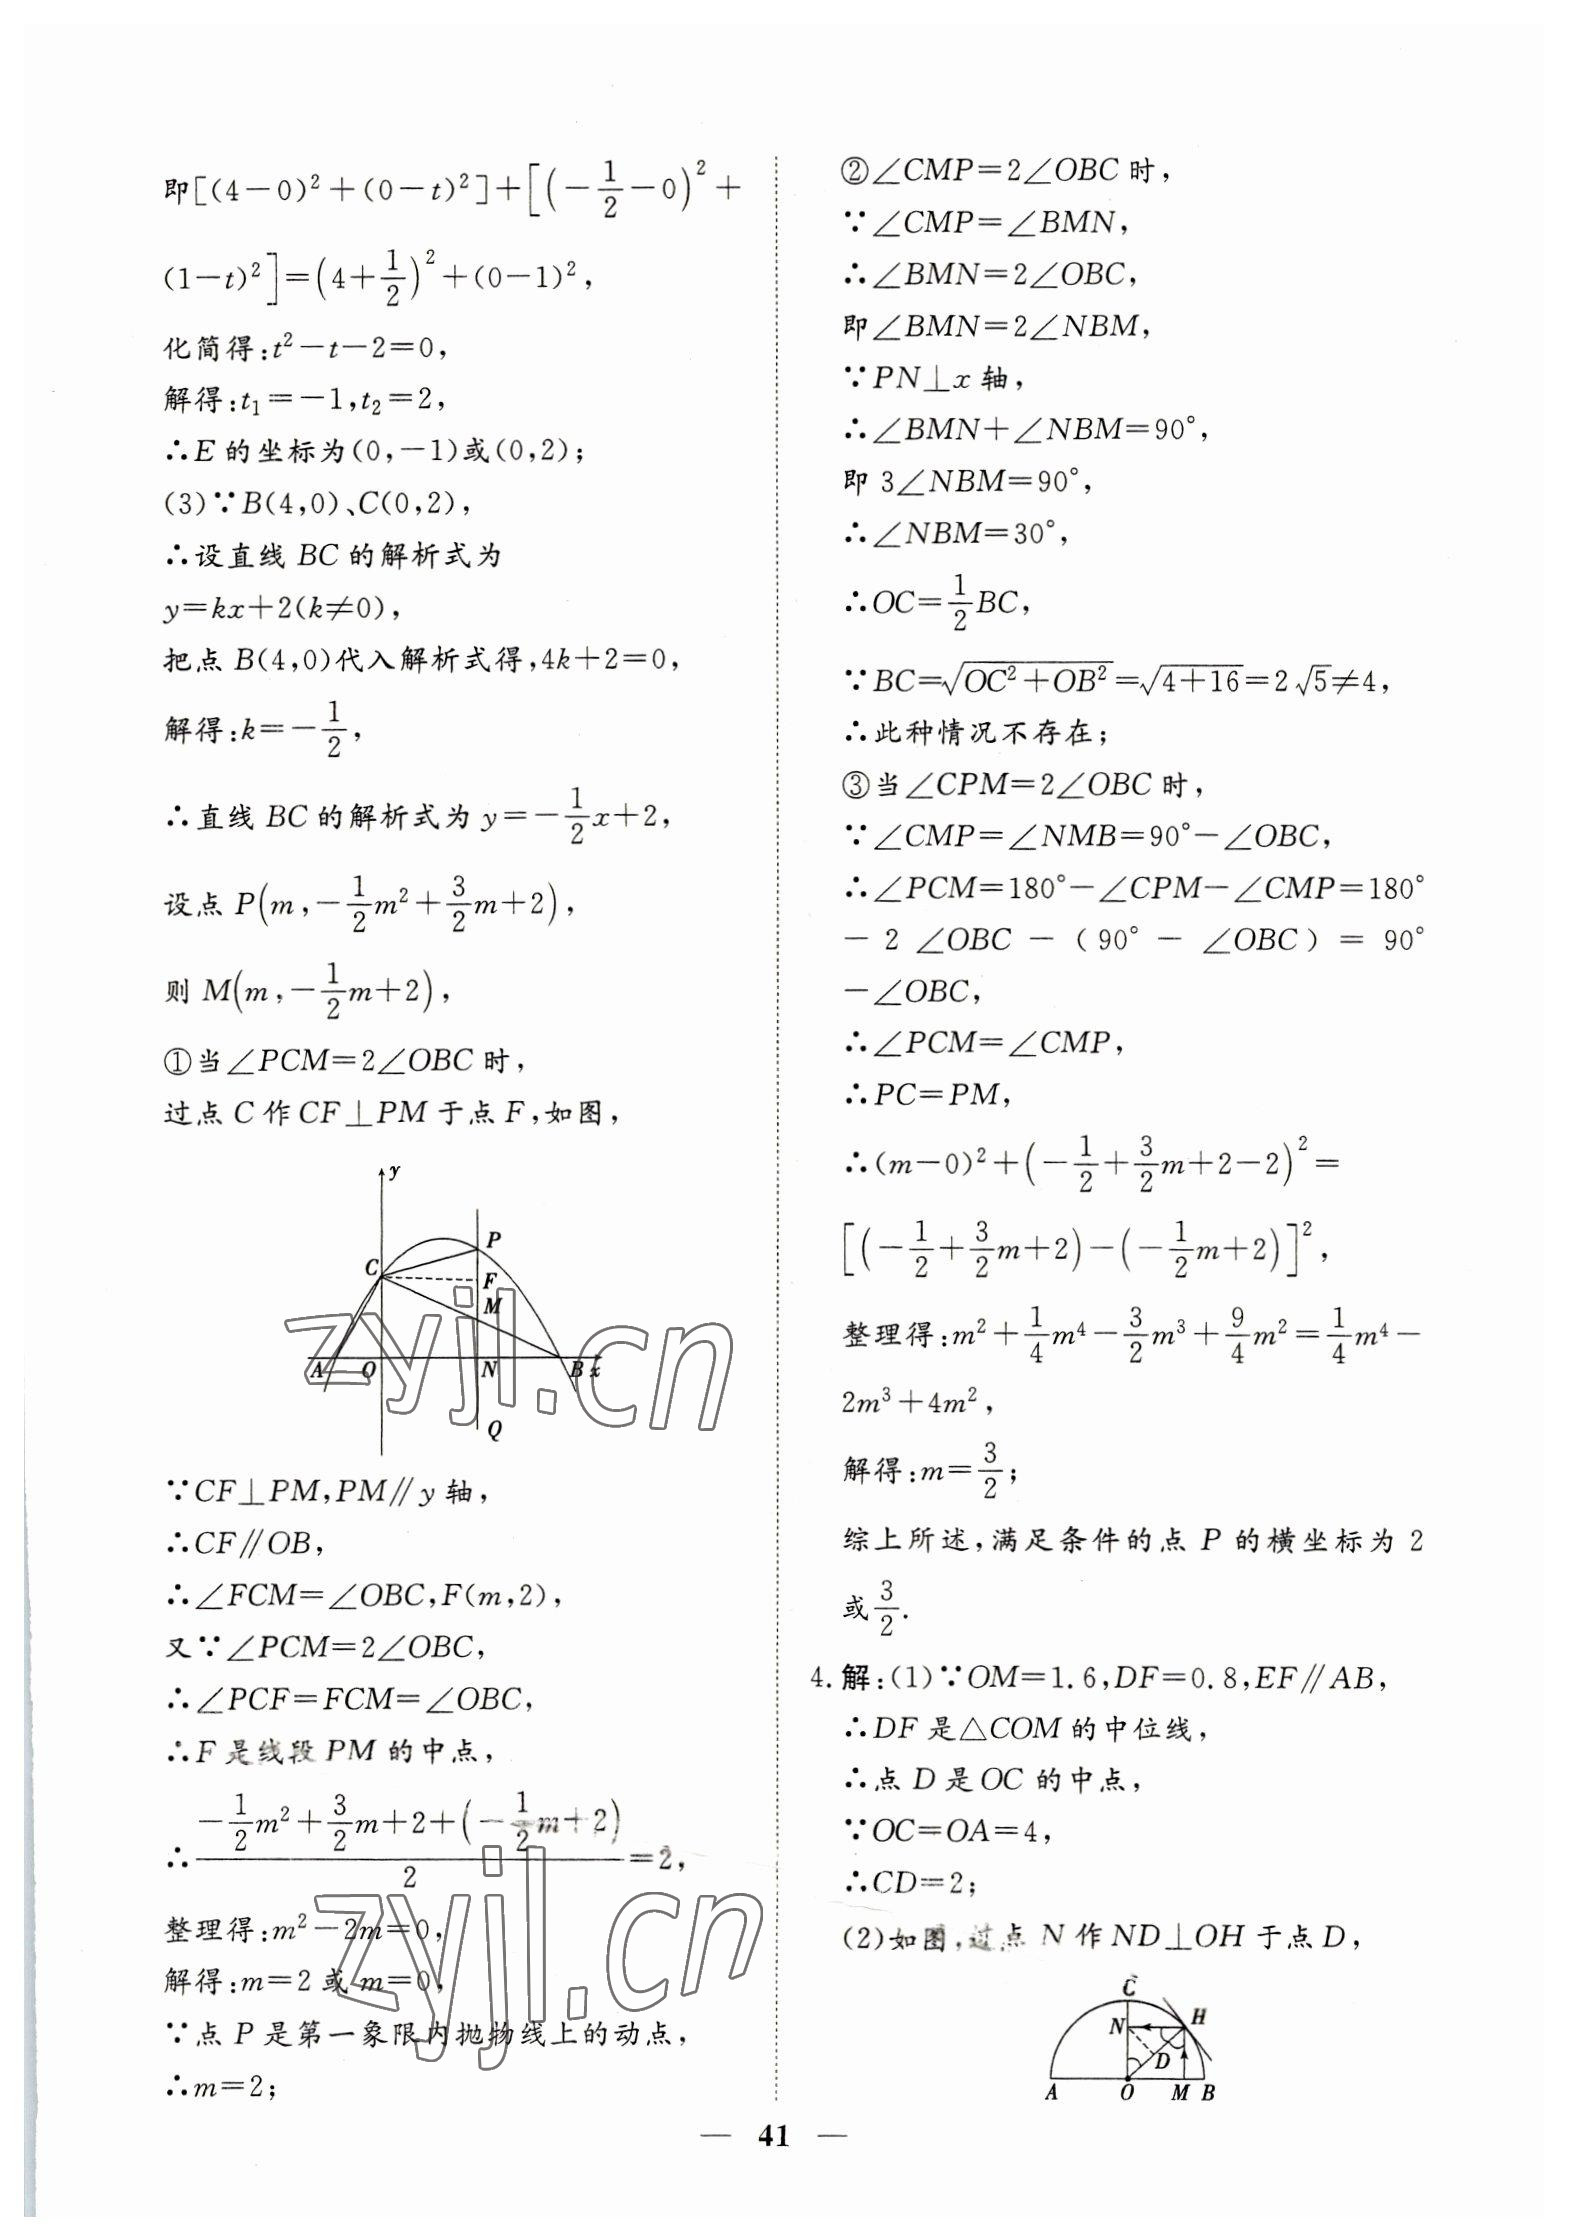 即[(4-0)²+(0-t)²]+[(-1/2-0)²+
(1-t)²]=(4+1/2)²+(0-1)²,
化简得:t²-t-2=0,
解得:t₁=-1,t₂=2,
∴E 的坐标为(0,-1)或(0,2);
(3)∵B(4,0)、C(0,2),
∴设直线 BC 的解析式为
y=kx+2(k≠0),
把点 B(4,0)代入解析式得,4k+2=0,
解得:k=-1/2,
∴直线 BC 的解析式为 y=-1/2x+2,
设点 P(m,-1/2m²+3/2m+2),
则 M(m,-1/2m+2),
①当∠PCM=2∠OBC 时,
过点 C 作 CF⊥PM 于点 F,如图,
y
P
C
F
M
A O N B x
Q
∵CF⊥PM,PM∥y 轴,
∴CF∥OB,
∴∠FCM=∠OBC,F(m,2),
又∵∠PCM=2∠OBC,
∴∠PCF=FCM=∠OBC,
∴F 是线段 PM 的中点,
∴(-1/2m²+3/2m+2+(-1/2m+2))/2=2,
整理得:m²-2m=0,
解得:m=2 或 m=0,
∵点 P 是第一象限内抛物线上的动点,
∴m=2;
②∠CMP=2∠OBC 时,
∵∠CMP=∠BMN,
∴∠BMN=2∠OBC,
即∠BMN=2∠NBM,
∵PN⊥x 轴,
∴∠BMN+∠NBM=90°,
即 3∠NBM=90°,
∴∠NBM=30°,
∴OC=1/2BC,
∵BC=√(OC²+OB²)=√(4+16)=2√5≠4,
∴此种情况不存在;
③当∠CPM=2∠OBC 时,
∵∠CMP=∠NMB=90°-∠OBC,
∴∠PCM=180°-∠CPM-∠CMP=180°
-2∠OBC-(90°-∠OBC)=90°
-∠OBC,
∴∠PCM=∠CMP,
∴PC=PM,
∴(m-0)²+(-1/2+3/2m+2-2)²=
[(-1/2+3/2m+2)-(-1/2m+2)]²,
整理得:m²+1/4m⁴-3/2m³+9/4m²=1/4m⁴-
2m³+4m²,
解得:m=3/2;
综上所述,满足条件的点 P 的横坐标为 2
或3/2.
4.解:(1)∵OM=1.6,DF=0.8,EF∥AB,
∴DF 是△COM 的中位线,
∴点 D 是 OC 的中点,
∵OC=OA=4,
∴CD=2;
(2)如图,过点 N 作 ND⊥OH 于点 D,
C
N H
D
A O M B
— 41 —
zyjl.cn
zyjl.cn